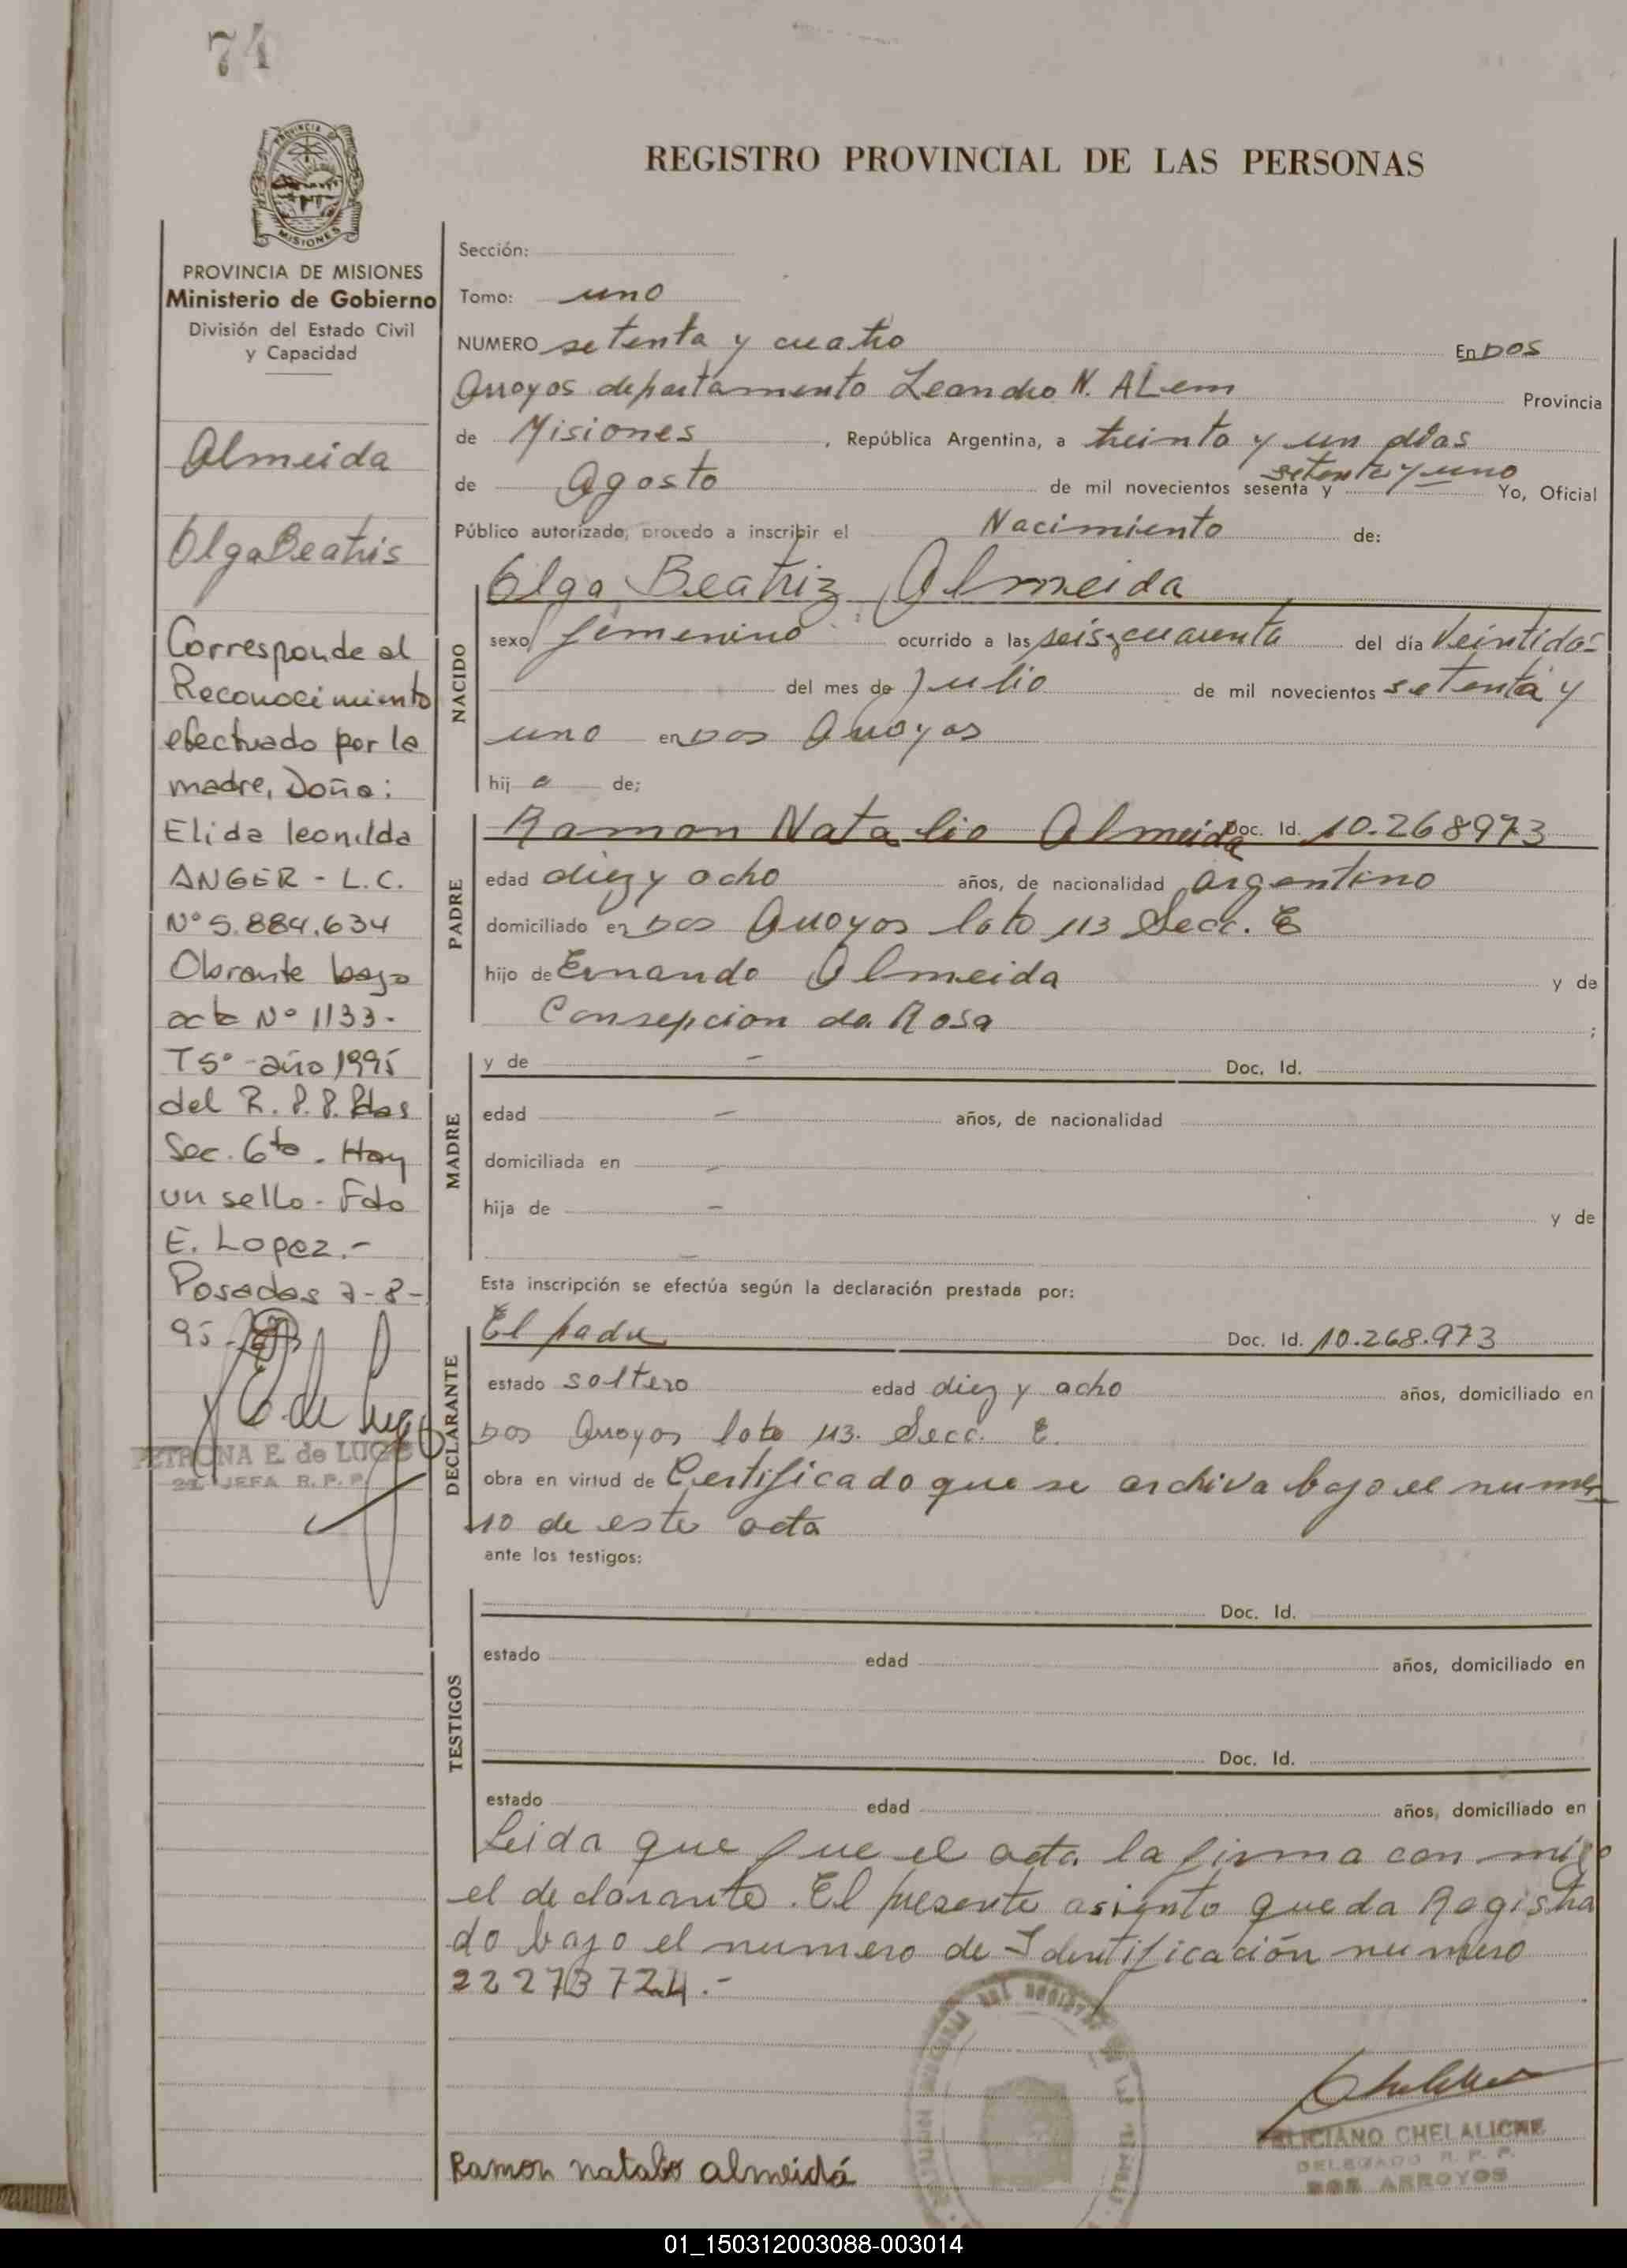 74
PROVINCIA DE
MISIONES
REGISTRO PROVINCIAL DE LAS PERSONAS
PROVINCIA DE MISIONES
Ministerio de Gobierno
División del Estado Civil
y Capacidad
Almeida
Olga Beatris
Corresponde al
Reconocimiento
efectuado por la
madre, Doña:
Elida leonilda
ANGER - L.C.
Nº 5.884.634
Obrante bajo
acta Nº 1133-
T5º - año 1995
del R.P.P. Pdas
Sec. 6ta. Hay
un sello - Fdo
E. Lopez.-
Posadas 7-8-
95-
PETRONA E. de LUGO
2ª JEFA R.P.P.
Sección:
Tomo: uno
NUMERO setenta y cuatro En DOS
Arroyos departamento Leandro N. ALem Provincia
de Misiones, República Argentina, a treinta y un dias
de Agosto de mil novecientos sesenta y setenta y uno Yo, Oficial
Público autorizado, procedo a inscribir el Nacimiento de:
NACIDO
Olga Beatriz Almeida
sexo femenino ocurrido a las seis y cuarenta del día Veintidos
del mes de Julio de mil novecientos setenta y
uno en Dos Arroyos
hij a de;
PADRE
Ramon Natalio Almeida Doc. Id. 10.268973
edad diez y ocho años, de nacionalidad argentino
domiciliado en Dos Arroyos lote 113 Secc. E
hijo de Ernando Almeida y de
Consepcion da Rosa ;
MADRE
y de - Doc. Id.
edad - años, de nacionalidad
domiciliada en -
hija de - y de
-
Esta inscripción se efectúa según la declaración prestada por:
DECLARANTE
El padre Doc. Id. 10.268.973
estado soltero edad diez y ocho años, domiciliado en
Dos Arroyos lote 113. Secc. E.
obra en virtud de Certificado que se archiva bajo el nume
ro de este acta
ante los testigos:
TESTIGOS
Doc. Id.
estado edad años, domiciliado en
Doc. Id.
estado edad años, domiciliado en
Leida que fue el acta la firma con migo
el declarante. El presente asiento queda Registra
do bajo el numero de Identificación numero
22273724.-
FELICIANO CHELALICHE
DELEGADO R.P.P.
DOS ARROYOS
Ramon natalio almeida
01_150312003088-003014